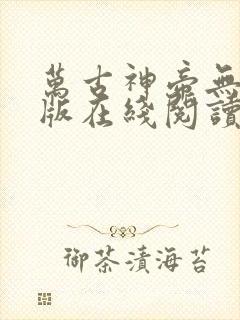 萬古神帝無
版在綫閱讀
御茶漬海苔